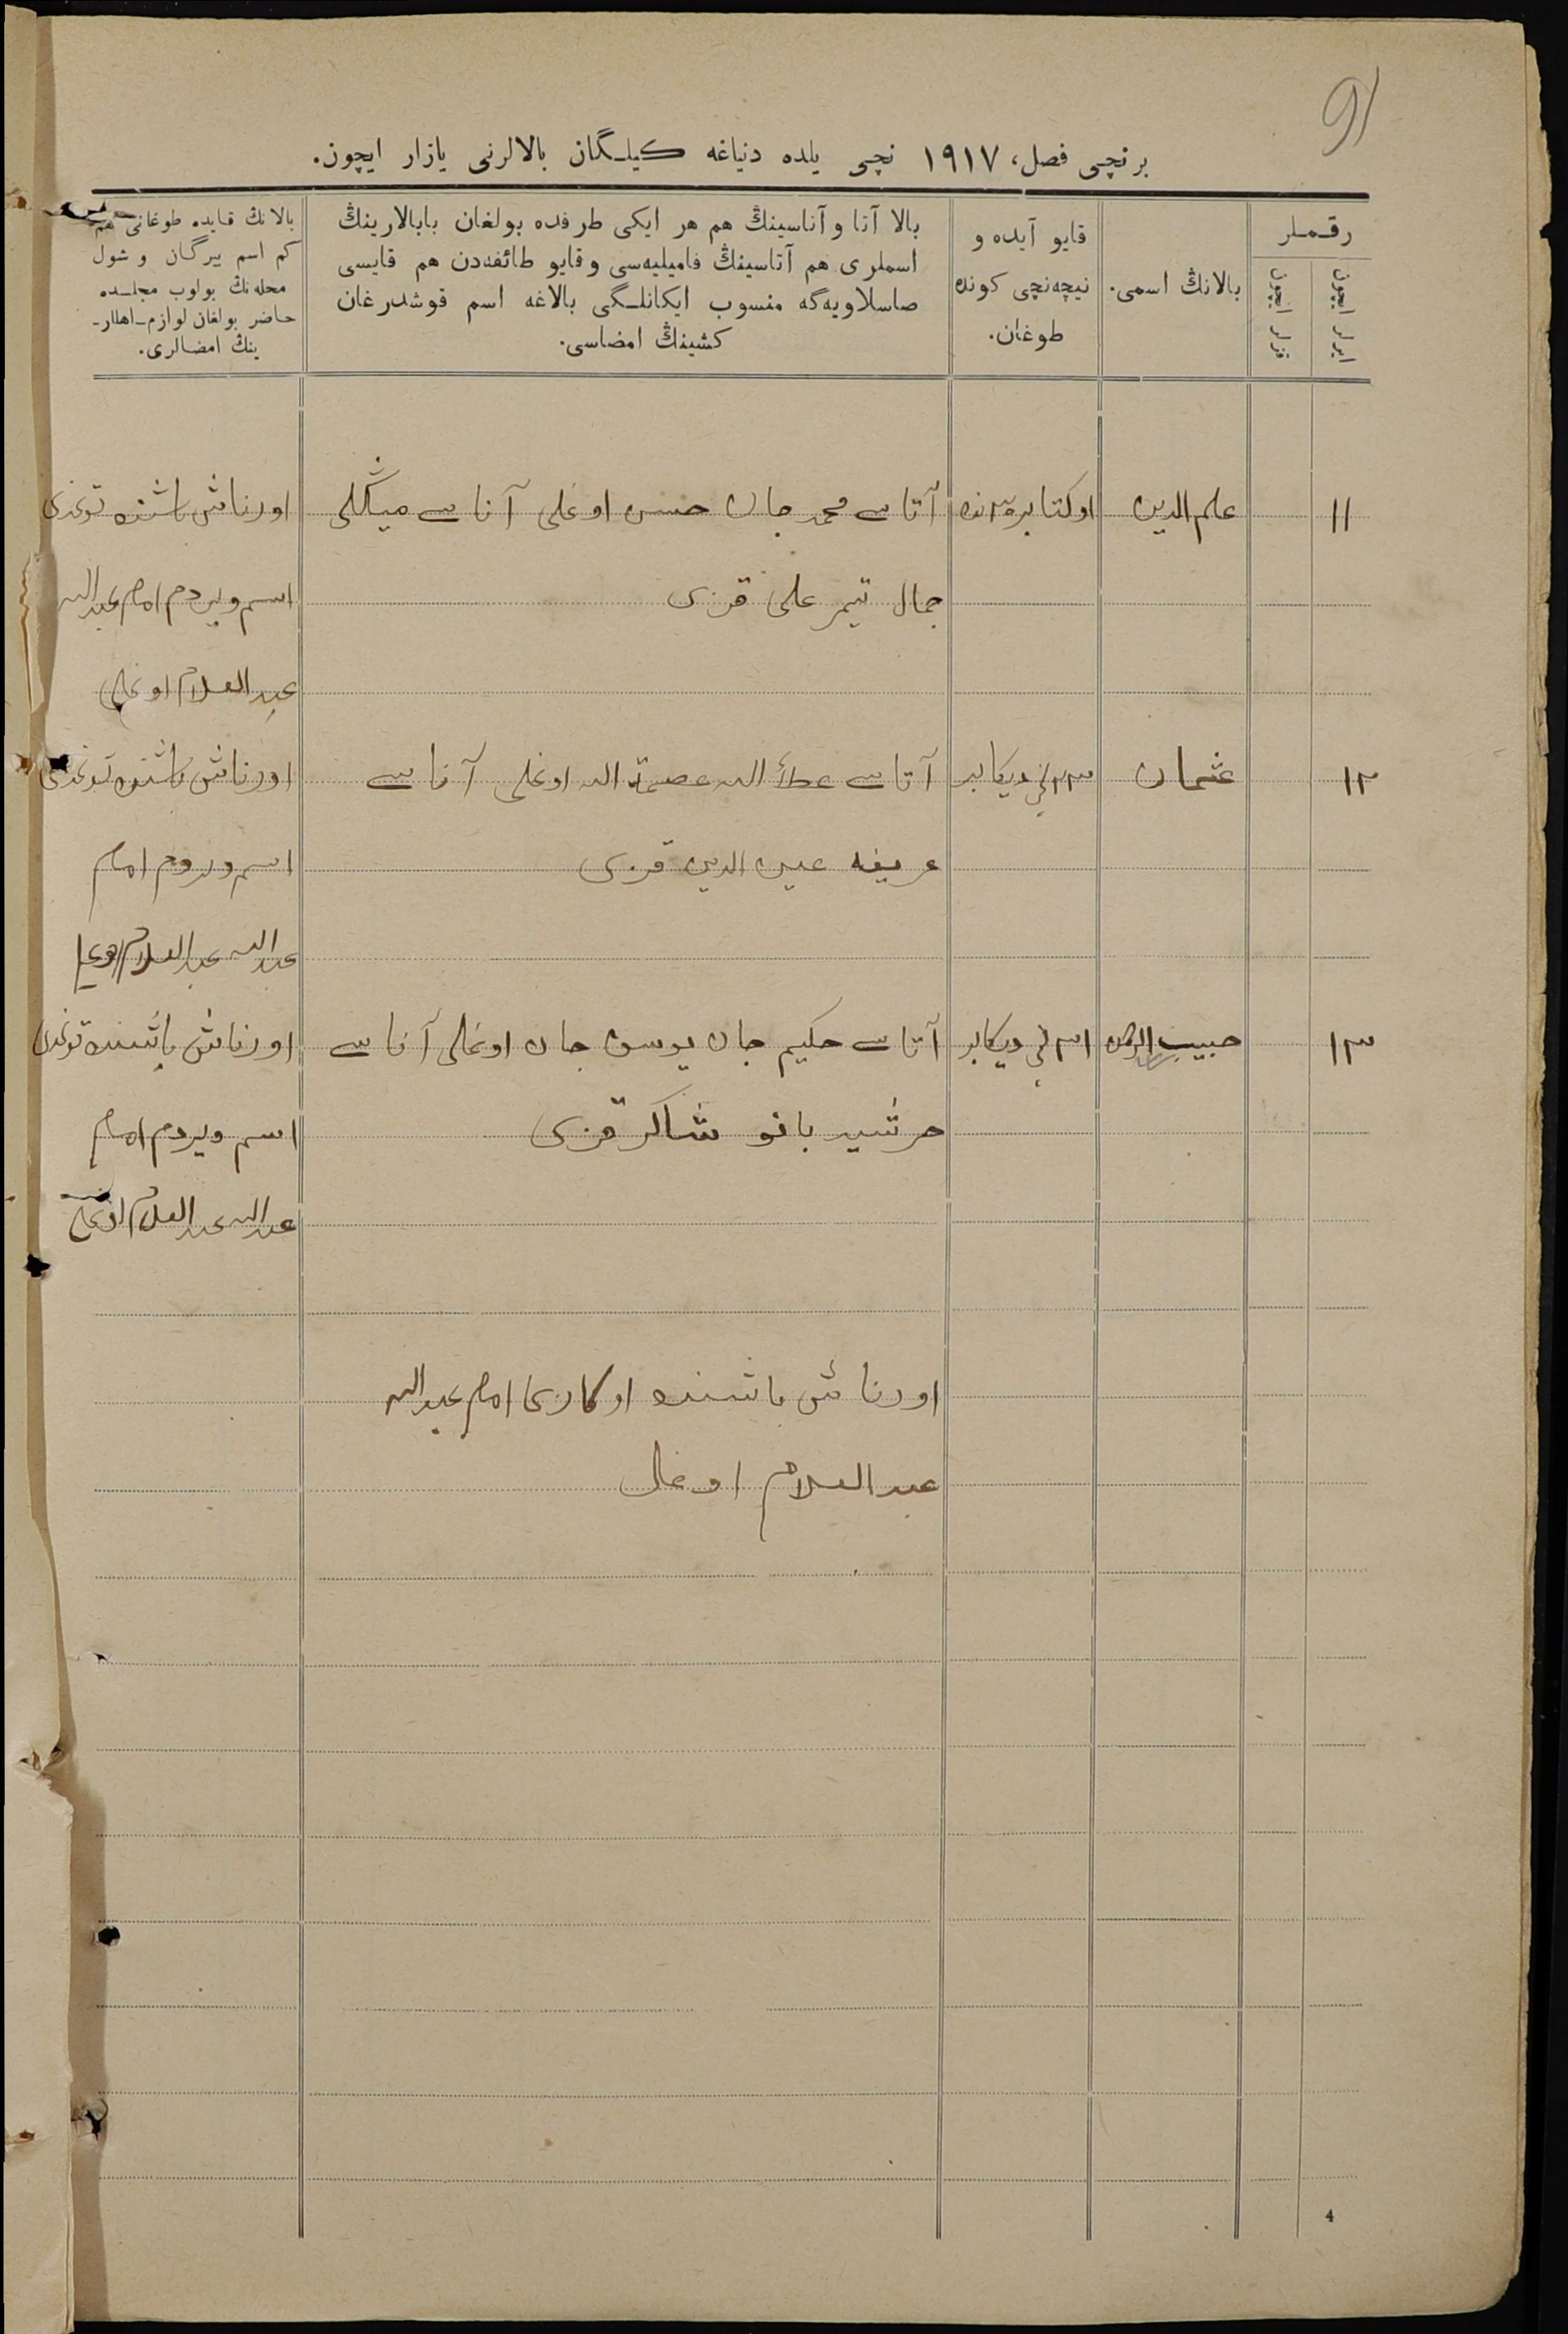 91
برنچی فصل، ١٩١٧ نچی یلده دنیاغه کیلگان بالالرنی یازار ایچون.
رقملر
ایرلر ایچون
قزلر ایچون
بالانڭ اسمی.
قایو آیده و
نیچه‌نچی کونده
طوغان.
بالا آتا و آناسینڭ هم هر ایکی طرفده بولغان بابالارینڭ
اسملری هم آتاسینڭ فامیلیه‌سی و قایو طائفه‌دن هم قایسی
صاسلاویه‌گه منسوب ایکانلگی بالاغه اسم قوشدرغان
کشینڭ امضاسی.
بالانڭ قایده طوغانی هم
کم اسم بیرگان و شول
محله‌نڭ بولوب مجلسده
حاضر بولغان لوازم اهللر-
ینڭ امضالری.
١١
علم الدین
اوکتابر
آتاسے محمد جان حسن اوغلی آناسے مینڭلی
جمال تیمر علی قزی
اورناش باشنده توغدی
اسم ویردم امام عبدالله
عبد السلام اوغلی
١٢
عثمان
٢٣ نچی دیکابر
آتاسے عطأ الله عصمة الله اوغلی آناسے
عریفه عین الدین قزی
اورناش باشنده توغدی
اسم ویردم امام
عبدالله عبد السلام اوغلی
١٣
حبیب الرحمن
٣١ نچی دیکابر
آتاسے حکیم جان یوسف جان اوغلی آناسے
حرشید بانو شاکر قزی
اورناش باشنده توغدی
اسم ویردم امام
عبدالله عبد السلام اوغلی
اورناش باشنده اوکازی امام عبدالله
عبد السلام اوغلی
4